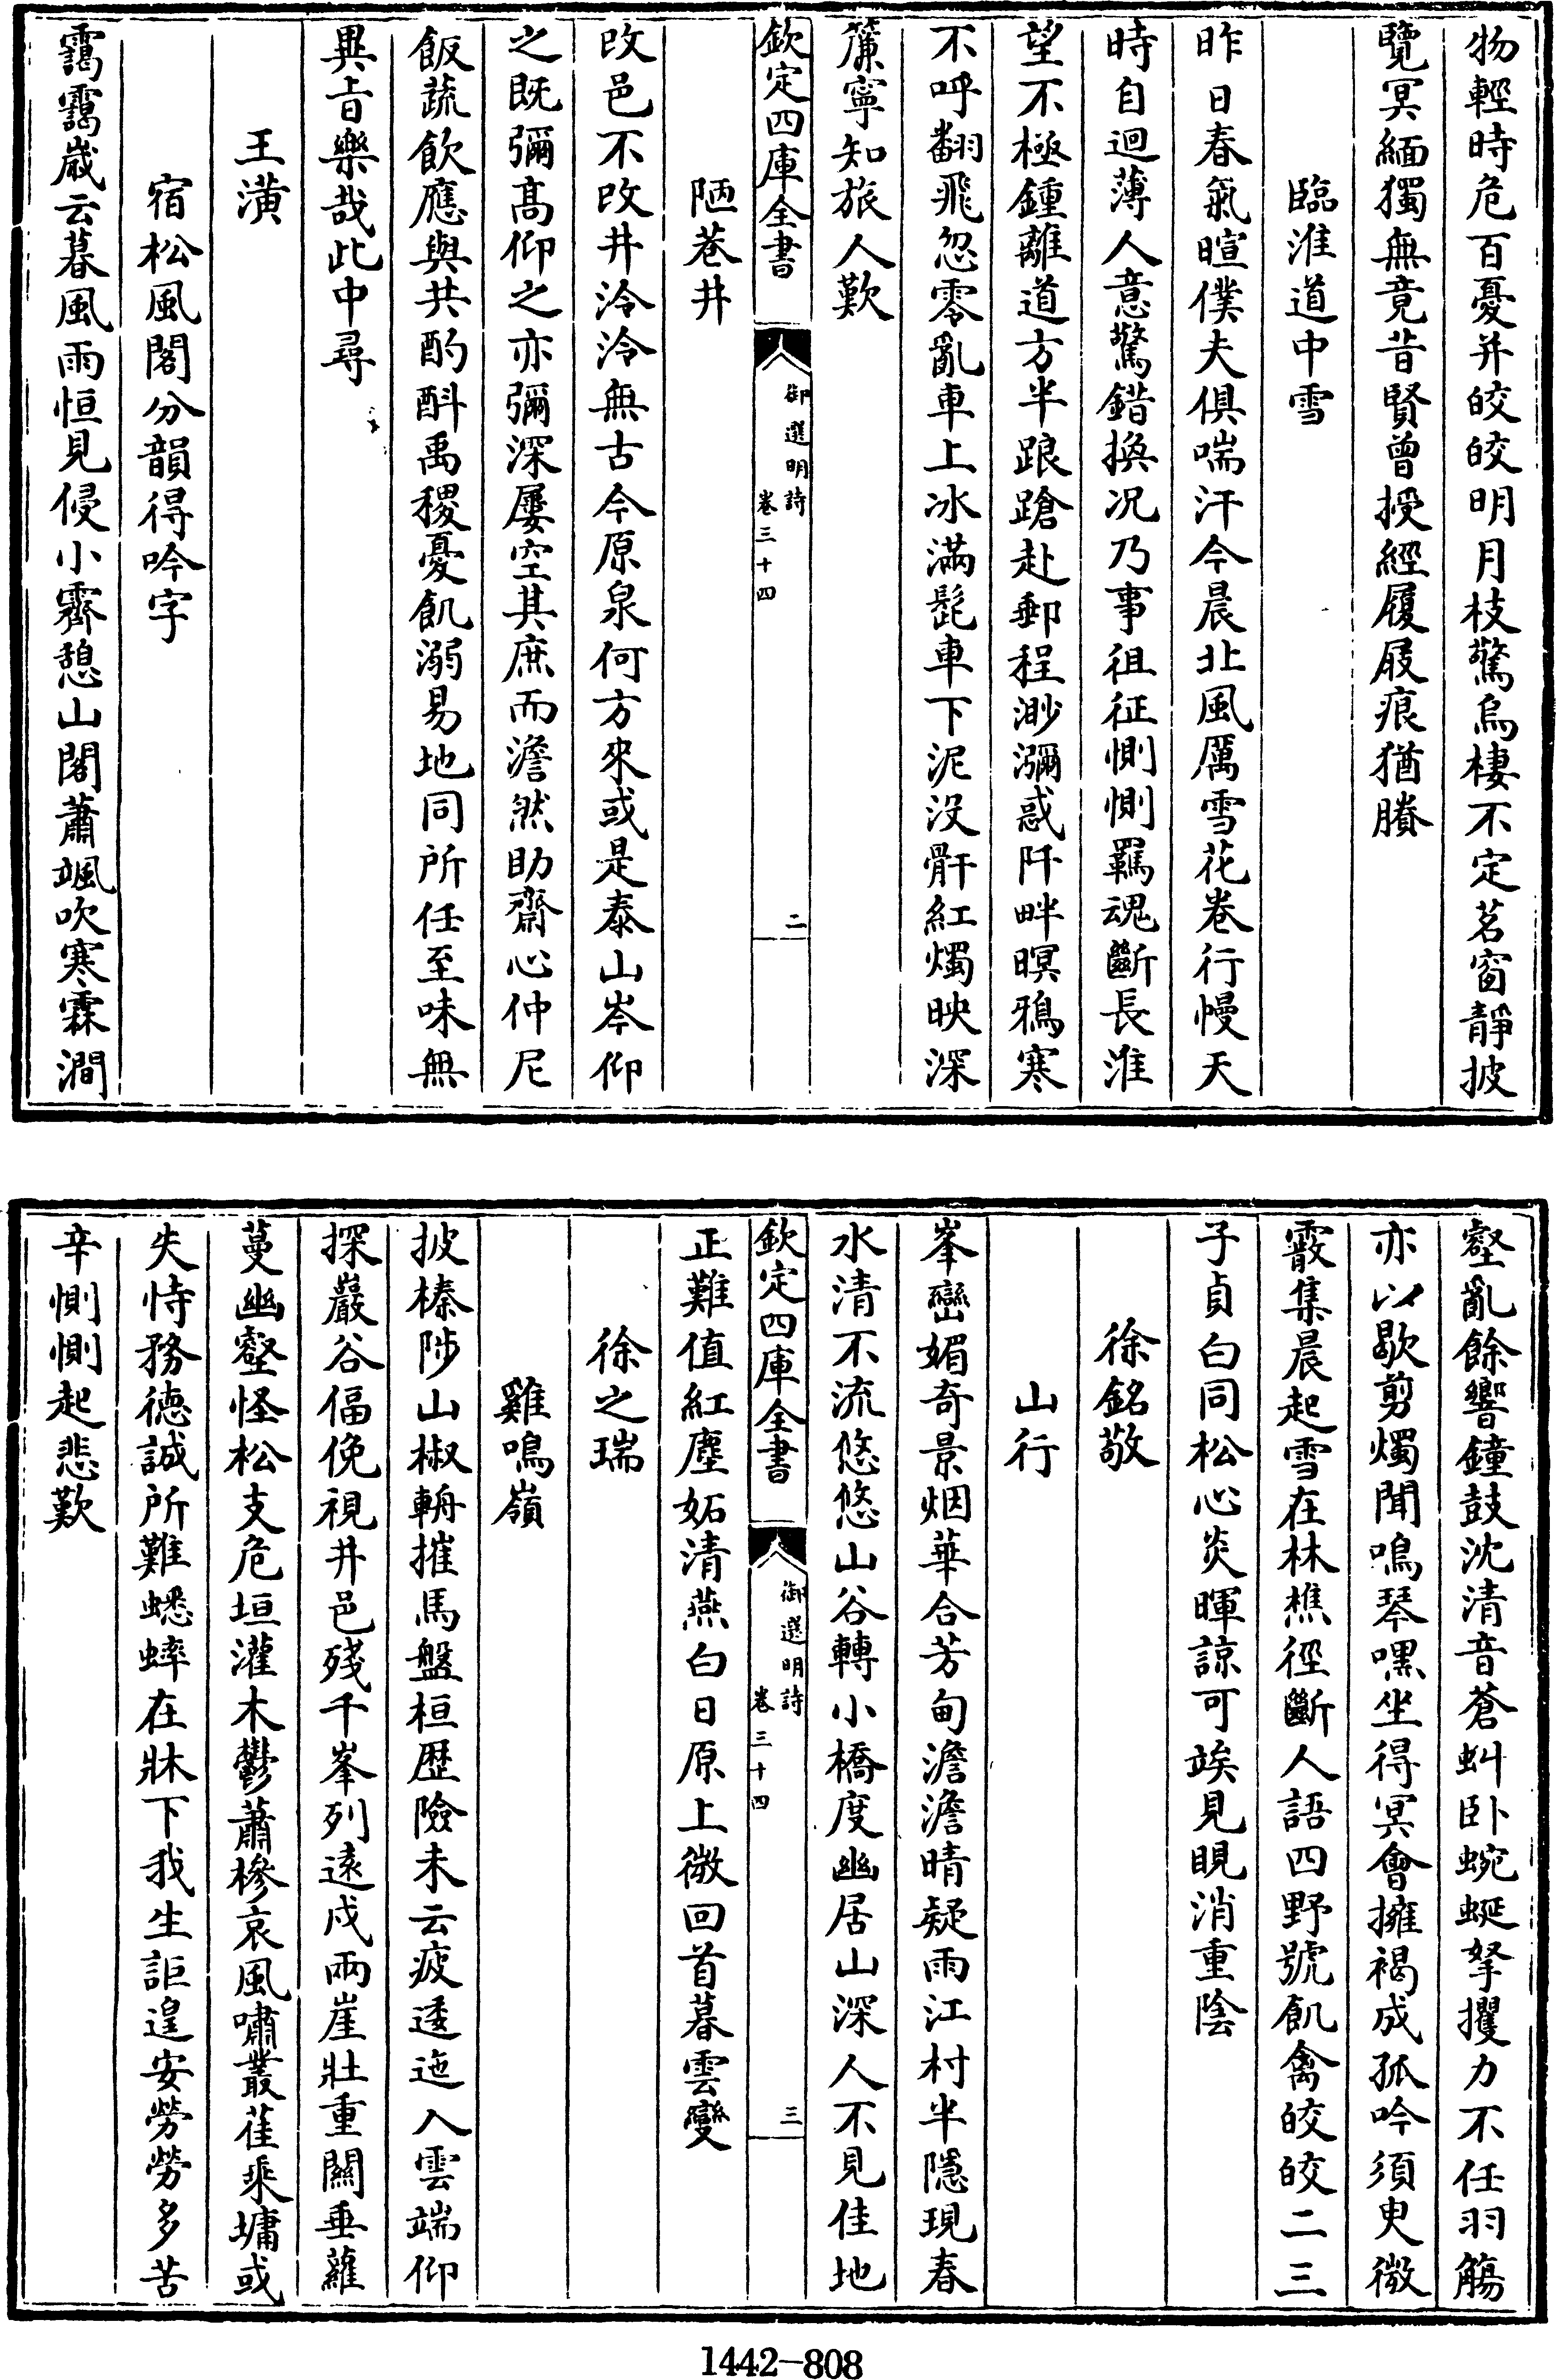 物輕時危百憂并皎皎明月枝驚烏棲不定茗窗靜披
覽冥緬獨無竟昔賢曾授經履屐痕猶賸
臨淮道中雪
昨日春氣暄僕夫俱喘汗今晨北風厲雪花卷行幔天
時自迴薄人意驚錯換况乃事徂征惻惻羈魂斷長淮
望不極鍾離道方半踉蹌赴郵程渺瀰惑阡畔暝鴉寒
不呼翻飛忽零亂車上冰滿髭車下泥没骭紅燭映深
簾寧知旅人歎
欽定四庫全書
御選明詩
卷三十四
二
陋巷井
改邑不改井泠泠無古今原泉何方來或是泰山岑仰
之既彌髙仰之亦彌深屢空其庶而澹然助齋心仲尼
飯蔬飲應與共酌斟禹稷憂飢溺易地同所任至味無
異旨樂哉此中尋
王潢
宿松風閣分韻得吟字
靄靄歲云暮風雨恒見侵小霽憩山閣蕭颯吹寒霖澗
壑亂餘響鐘鼓沈清音蒼虬卧蜿蜒拏攫力不任羽觴
亦以歇剪燭聞鳴琴嘿坐得冥會擁褐成孤吟須臾微
霰集晨起雪在林樵徑斷人語四野號飢禽皎皎二三
子貞白同松心炎暉諒可竢見晛消重陰
徐銘敬
山行
峯巒媚奇景烟華合芳甸澹澹晴疑雨江村半隱現春
水清不流悠悠山谷轉小橋度幽居山深人不見佳地
欽定四庫全書
御選明詩
卷三十四
三
正難值紅塵妬清燕白日原上微回首暮雲變
徐之瑞
雞鳴嶺
披榛陟山椒輈摧馬盤桓歴險未云疲逶迤入雲端仰
探巖谷偪俛視井邑殘千峯列遠戍兩崖壯重關垂蘿
蔓幽壑怪松支危垣灌木鬱蕭槮哀風嘯叢萑乘墉或
失恃務徳誠所難蟋蟀在牀下我生詎遑安勞勞多苦
辛惻惻起悲歎
1442-808